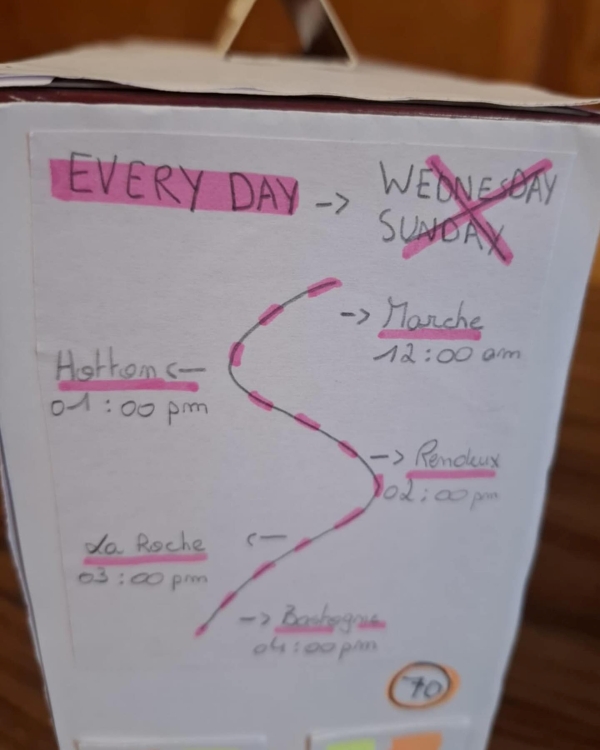 EVERY DAY ->
WEDNESDAY
SUNDAY
-> Marche
12:00 am
Hotton <-
01:00 pm
-> Rendeux
02:00 pm
La Roche <-
03:00 pm
-> Bastogne
04:00 pm
70